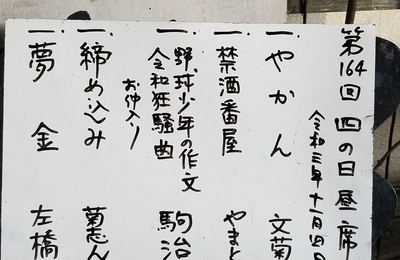 第164回 四の日昼席
令和三年十一月四日
一. やかん 文菊
一. 禁酒番屋 やまと
一. 野球少年の作文
令和狂騒曲 駒治
お仲入り
一. 締め込み 菊志ん
一. 夢金 左橋